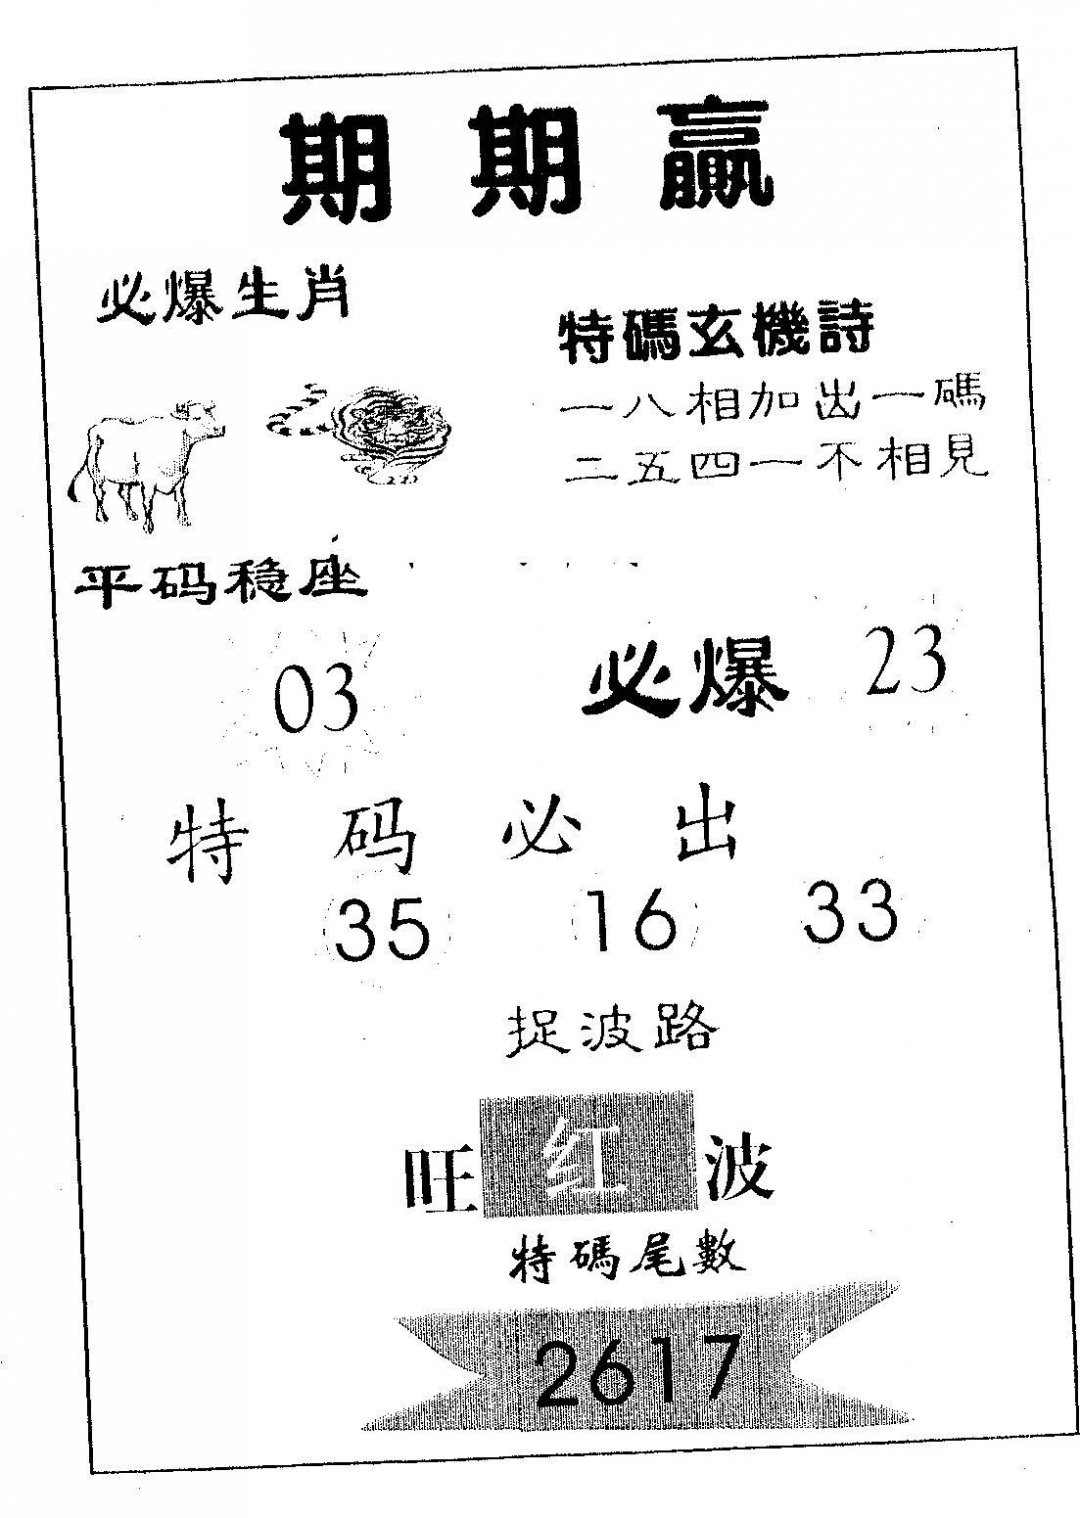 期期贏
必爆生肖
特碼玄機詩
一八相加出一碼
二五四一不相見
平码稳座
03
必爆 23
特码必出
35 16 33
捉波路
旺红波
特碼尾數
2617